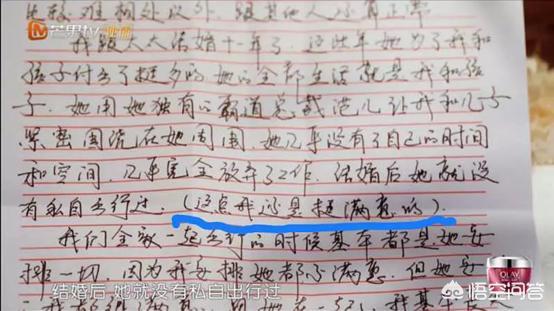 芒果TV
比较难相处以外,跟其他人还算正常
我跟太太结婚十一年了,这些年她为了我和
孩子付出了挺多的她的全部生活就是我和孩
子.她用她独有的霸道总裁范儿让我和儿子
紧密围绕在她周围,她几乎没有了自己的时间
和空间,几乎完全放弃了工作,结婚后她就没
有私自出行过.(这点我还是挺满意的).
我们全家一起出行的时候基本都是她安
排一切,因为我安排她都不满意,但她安
结婚后 她就没有私自出行过
OLAY
悟空问答